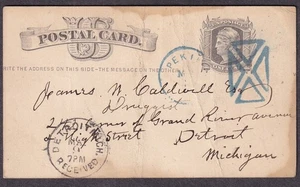 POSTAL CARD.
WRITE THE ADDRESS ON THIS SIDE - THE MESSAGE ON THE OTHER
PEKIN
James N. Caldwell Esq
Druggist
Corner of Grand River avenue
& High Street
Detroit
Michigan
DETROIT MICH
MAY
7PM
RECEIVED